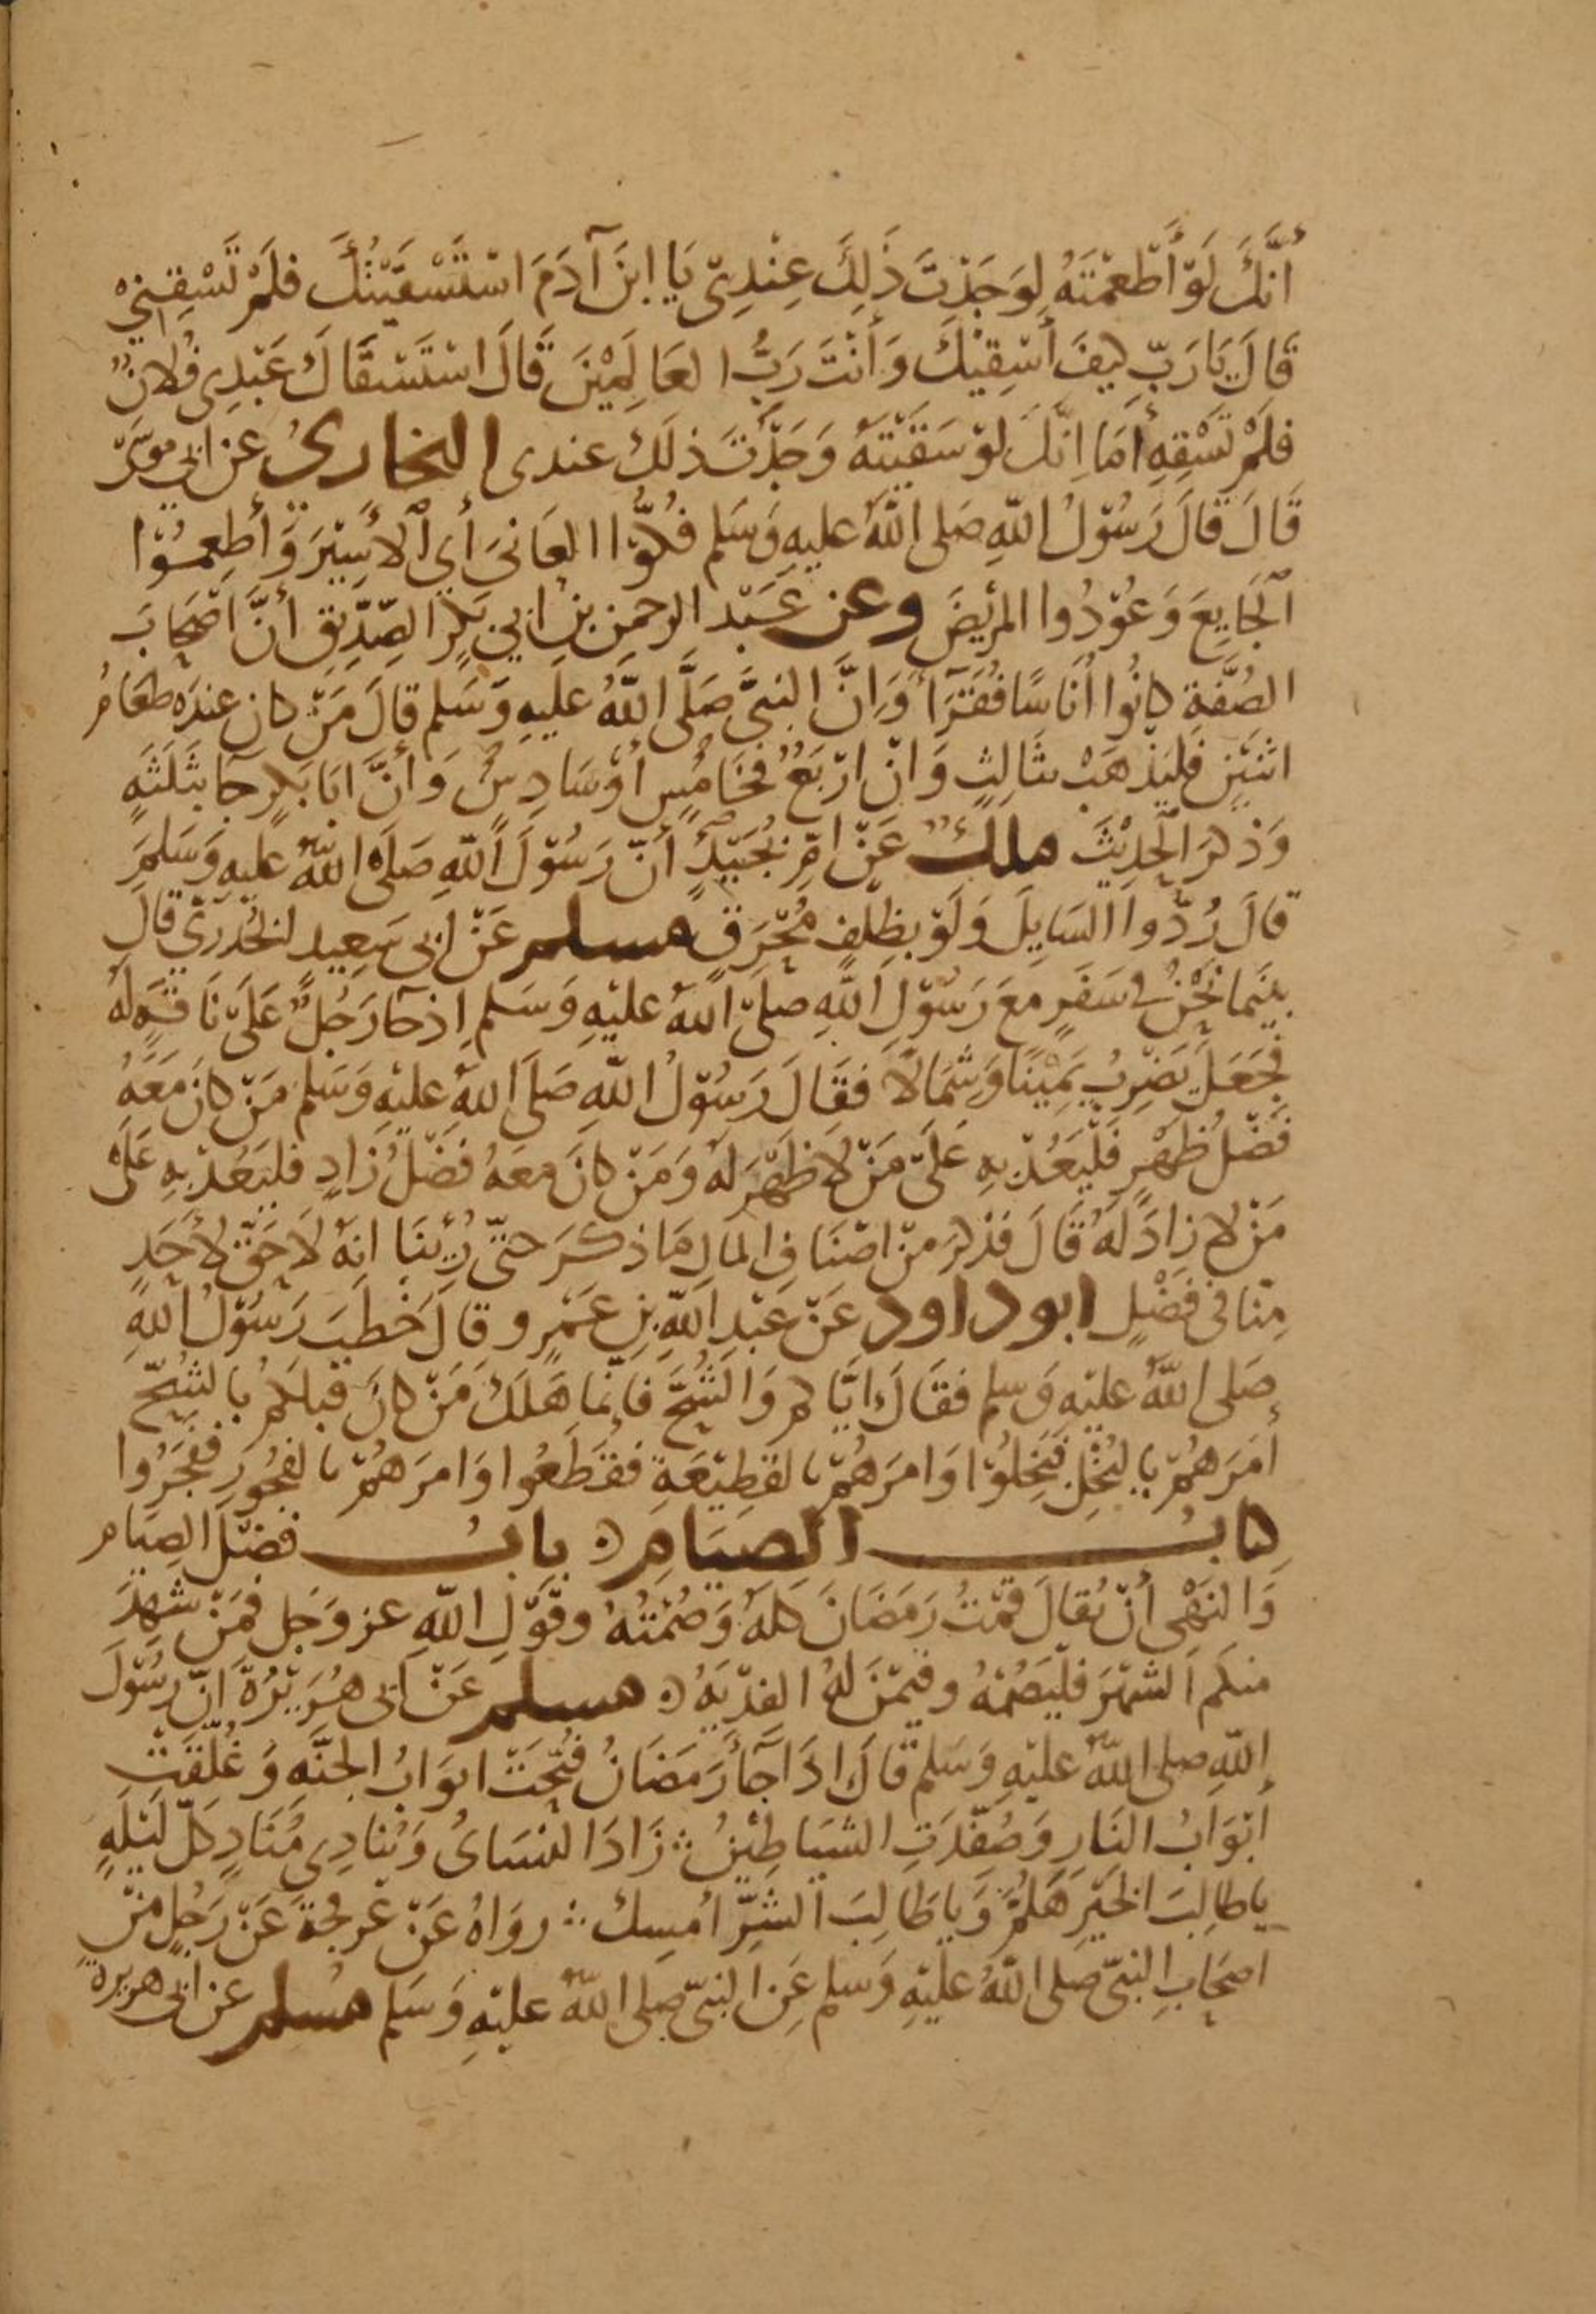 أَنَّكَ لَوْ أَطْعَمْتَهُ لَوَجَدْتَ ذَلِكَ عِنْدِي يَا ابْنَ آدَمَ اسْتَسْقَيْتُكَ فَلَمْ تَسْقِنِي
قَالَ يَا رَبِّ كَيْفَ أَسْقِيْكَ وَأَنْتَ رَبُّ العَالَمِيْنَ قَالَ اسْتَسْقَاكَ عَبْدِي فُلَانٌ
فَلَمْ تَسْقِهِ أَمَا إِنَّكَ لَوْ سَقَيْتَهُ وَجَدْتَ ذلَكَ عندى البخاريُ عن ابي موسَى
قَالَ قَالَ رَسُوْلُ اللّهِ صَلى اللّهُ عليهِ وَسَلم فُكُّوْا العَانيَ أي الأَسِيْرَ وَأَطعِمُوْا
الجَايعَ وَعُوْدُوا المريْضَ وعن عَبْد الرحمن بن ابي بَكرٍ الصِّدِّيقِ أنَّ أَصْحَابَ
الصُّفَّةِ كانُوا أُنَاسًا فُقَرَآءَ وَانَّ النبيَّ صَلَّى اللّهُ عَليهِ وَسَلم قالَ مَنْ كان عندَه طعَامُ
اثنَيْنِ فليَذْهَبْ بثالِثٍ وَانْ ارْبَعٌ فَخَامِسٍ أوْ سَادِسٍ وَأنَّ ابَا بَكرٍ جَا بثَلثَةٍ
وَذكرَ الحَدِيْثَ ملك عَنْ امِّ بُجَيْدٍ أنّ رَسُوْلَ اللّهِ صَلَى اللّهُ عليهِ وَسَلمَ
قالَ رُدّوا السَايلَ وَلَوْ بظِلفٍ مُحْرَقٍ مسلم عَنْ ابى سَعِيد الخُدريّ قال
بينَما نَحْنُ في سَفَرٍ معَ رَسُوْلِ اللّهِ صَلَّى اللّهُ عليْهِ وَسَلم اِذ جَا رَجُلٌ عَلَى نَاقةٍ لهُ
فجَعَلَ يَضْرِبُ يَمِيْنًا وَشِمَالًا فقَالَ رَسُوْلُ اللّهِ صَلى اللّهُ عليْهِ وَسَلم مَنْ كانَ مَعَهُ
فضْلُ ظَهْرٍ فَلْيَعُدْ بِهِ عَلَى مَنْ لا ظَهْرَ لهُ وَمَنْ كانَ معَهُ فضْلُ زَادٍ فليَعُدْ بهِ عَلى
مَنْ لا زادَ لهُ قَالَ فذكرَ منْ اصْنَافِ المَالِ مَا ذكرَ حتى رُئِينَا انهُ لَا حَقّ لأحَدٍ
مِنّا فى فضْلٍ ابو داود عَنْ عَبْدِ اللّهِ بنِ عَمْرو قالَ خطبَ رَسُوْلُ اللّهِ
صَلى اللّهُ عليْهِ وَسلم فقَالَ ايَّاكم وَالشُحَّ فَإِنّما هَلَكَ مَنْ كانَ قبْلَكُمْ بالشُحّ
أمَرَهُمْ بالبُخْلِ فَبَخِلوْا وَامرَهُمْ بالقَطِيْعَةِ فقَطَعُوا وَامرَهُمْ بالفجُورِ ففجَرُوا
كتابُ الصِيَام بابُ فضْلِ الصِيَام
وَالنَهْى أنْ يُقالَ قُمْتُ رَمَضَانَ كلهُ وَصُمْتُهُ وقَوْلِ اللّهِ عز وَجَل فَمَنْ شهِدَ
منكم الشهْرَ فَلْيَصُمْهُ وفيْمَنْ لهُ الفدْيَهُ مسلم عَنْ ابى هُرَيْرَةَ انّ رسُوْلَ
اللّهِ صلى اللّهُ عليْهِ وَسَلم قالَ اذَا جَآءَ رَمَضَانُ فُتِحَتْ ابوَابُ الجنَّهِ وَغُلِقَتْ
أبْوَابُ النَارِ وَصُفّدَتِ الشيَاطِيْنُ زَادَ النسَاىُ وَيُنادِى مُنَادٍ كلّ لَيْلَهٍ
يا طالِبَ الخَيْرِ هَلُمَّ وَيا طَالِبَ الشَرِّ أَمسِك روَاهُ عَنْ عَرفجةَ عَنْ رَجُلٍ منْ
اصحَابِ النبيّ صَلى اللّهُ عليْهِ وَسلم عَنِ النبيّ صلى اللّهُ عليْهِ وَسَلم مسلم عن ابى هريرة